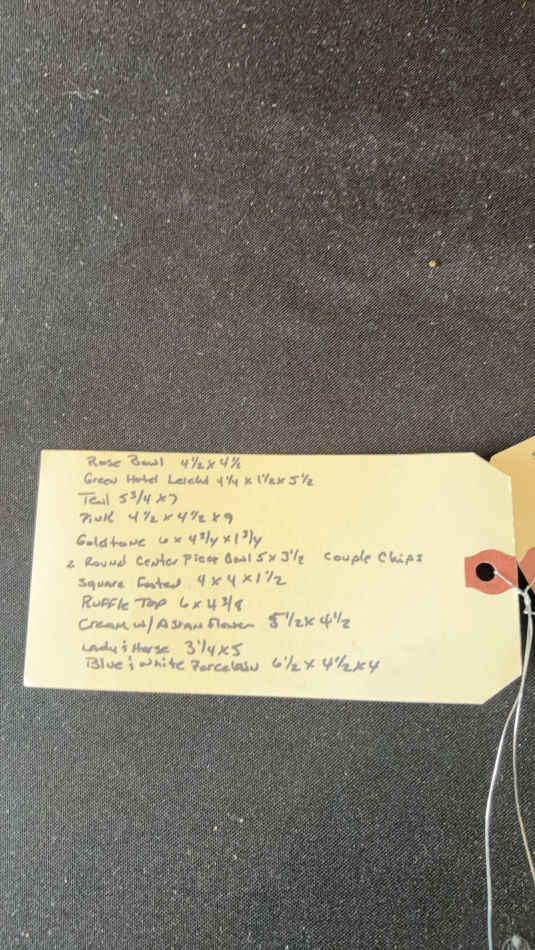 Rose Bowl 4 1/2 x 4 1/2
Green Hotel 4 1/4 x 1 1/2 x 5 1/2
Teal 5 3/4 x 7
Pink 4 1/2 x 4 1/2 x 9
Goldtone 6 x 4 3/4 x 1 3/4
2 Round Center Piece Bowl 5 x 3 1/2 Couple Chips
Square Footed 4 x 4 x 1 1/2
Ruffle Top 6 x 4 3/8
Cream w/ Asian Flower 5 1/2 x 4 1/2
Lady & Horse 3 1/4 x 5
Blue & White Porcelain 6 1/2 x 4 1/2 x 4